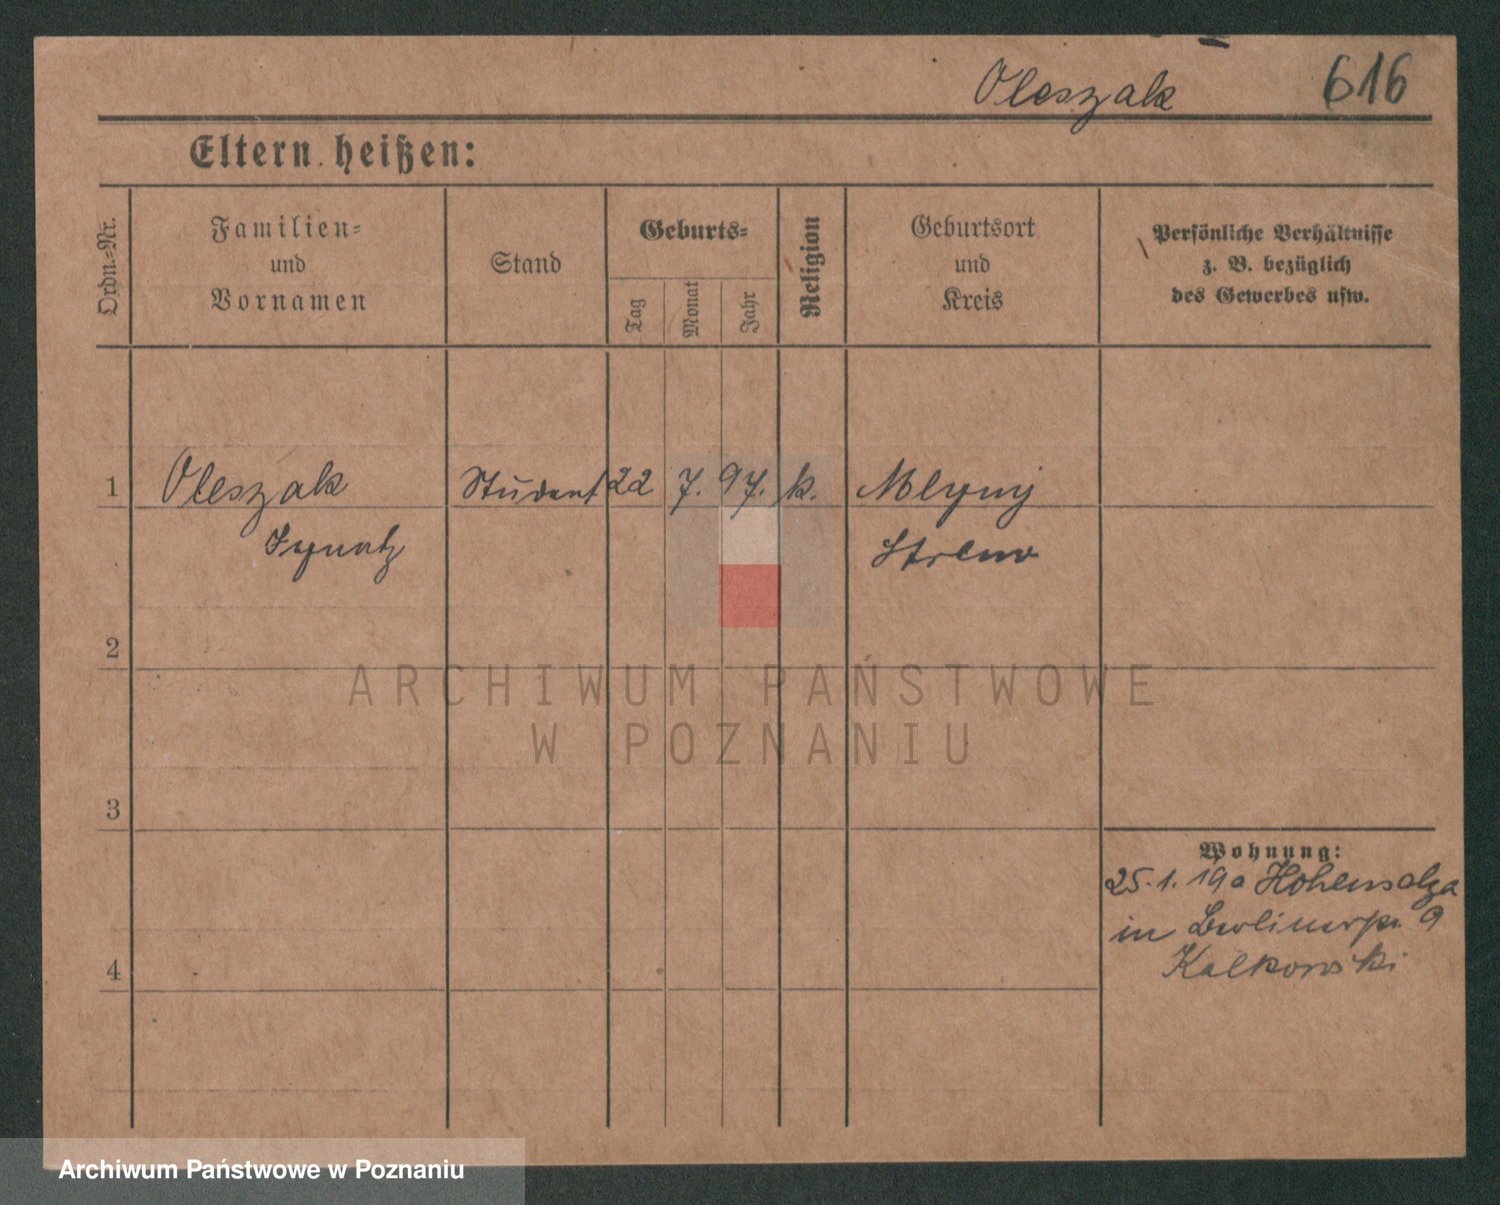 Oleszak 616
Eltern heißen:
Ordn.-Nr.
Familien-
und
Vornamen
Stand
Geburts-
Tag
Monat
Jahr
Religion
Geburtsort
und
Kreis
Persönliche Verhältnisse
z. B. bezüglich
des Gewerbes usw.
1 Oleszak Student 22 7. 97. k. Mlyny
Ignatz Strelno
2
ARCHIWUM PAŃSTWOWE
W POZNANIU
3
Wohnung:
25.1.19 a Hohensalza
in Berlinerstr. 9
Kalkowski
4
Archiwum Państwowe w Poznaniu